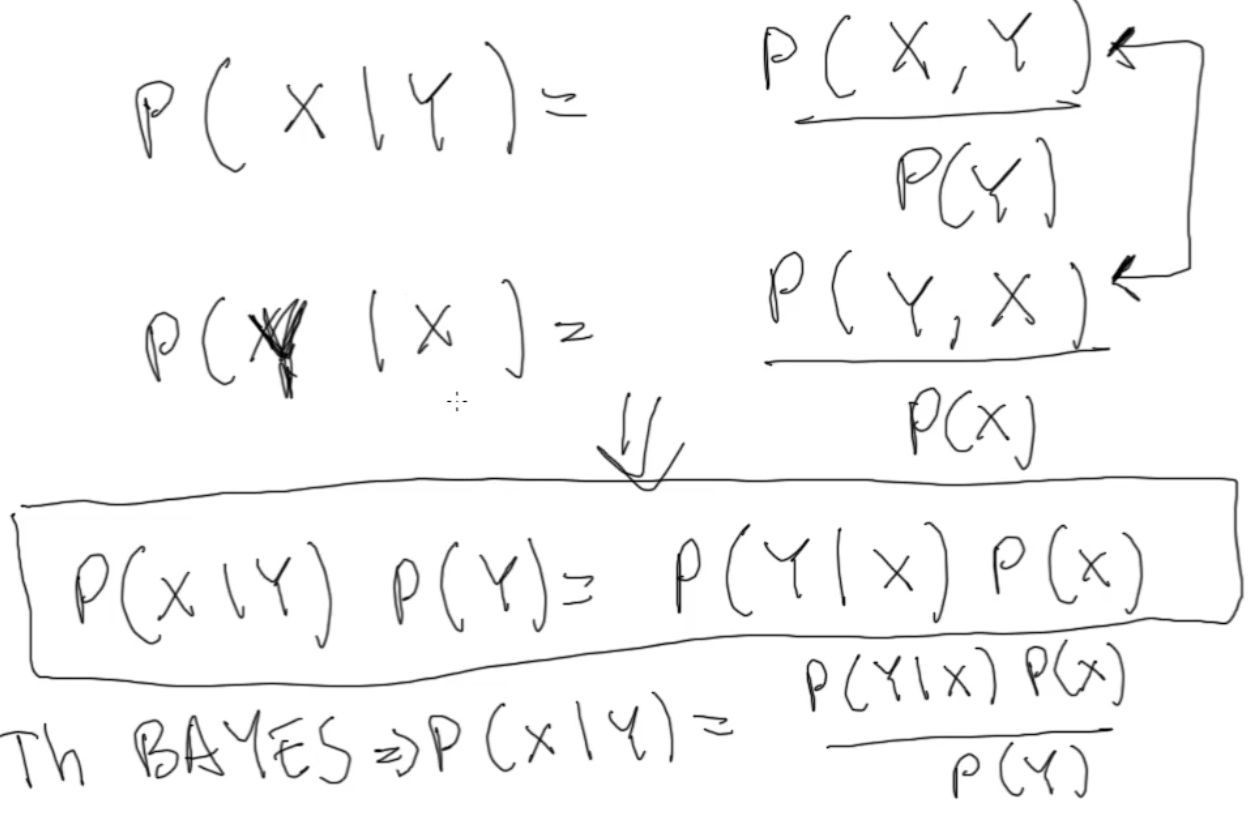 P(X|Y) = P(X,Y) / P(Y)
P(Y|X) = P(Y,X) / P(X)
⇓
P(X|Y) P(Y) = P(Y|X) P(X)
Th BAYES ⇒ P(X|Y) = P(Y|X) P(X) / P(Y)